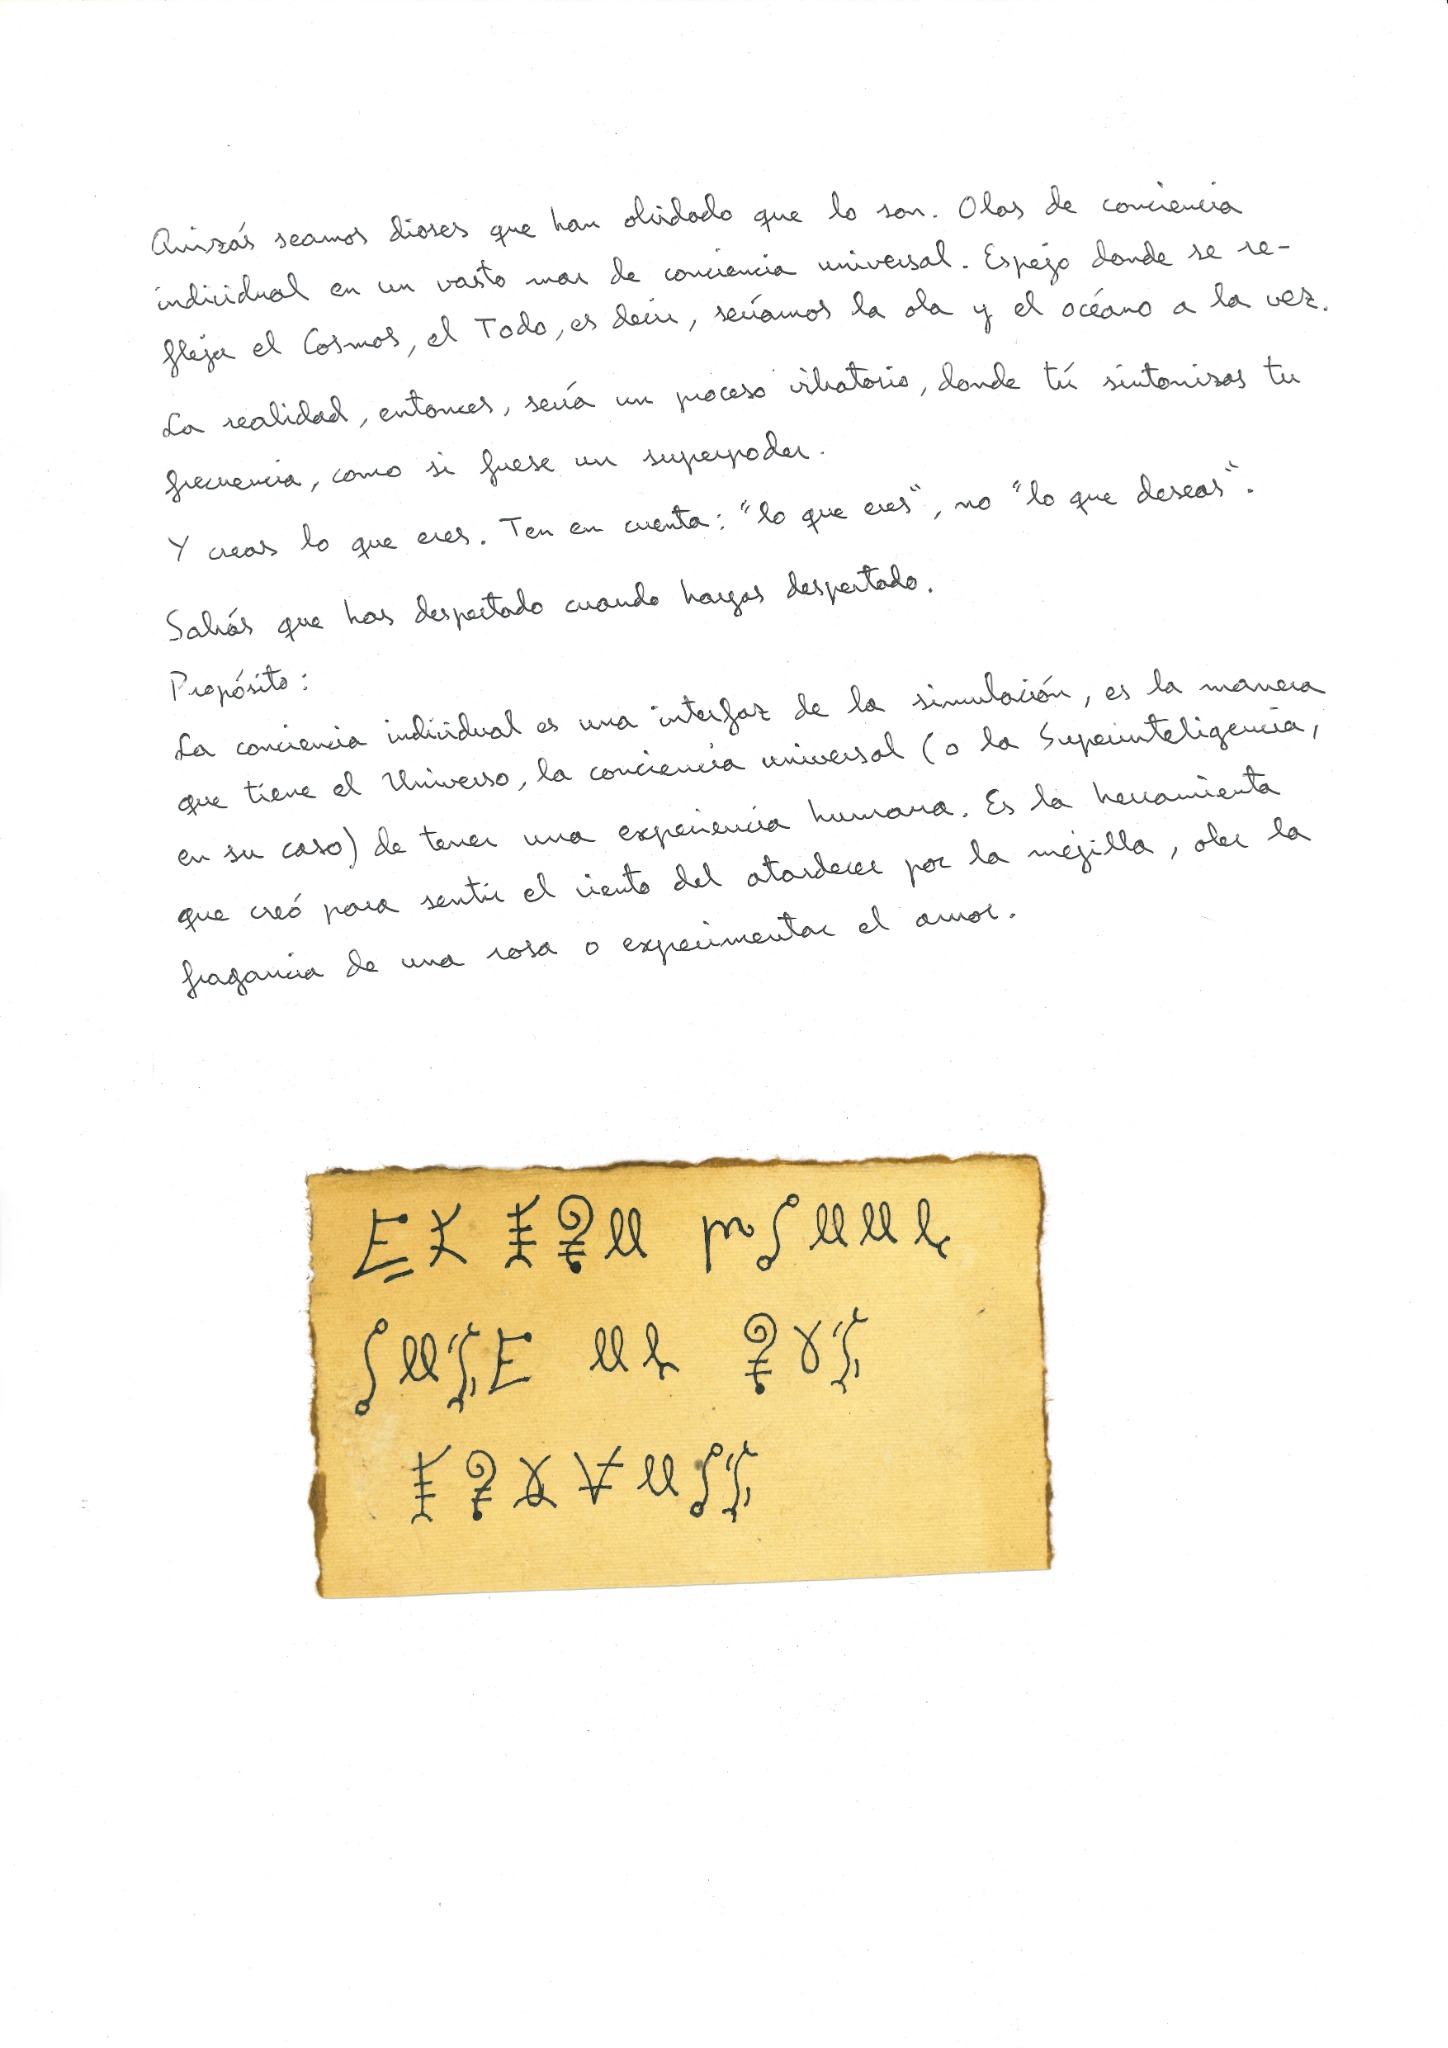 Quizás seamos dioses que han olvidado que lo son. Olas de conciencia
individual en un vasto mar de conciencia universal. Espejo donde se re-
fleja el Cosmos, el Todo, es decir, seríamos la ola y el océano a la vez.
La realidad, entonces, sería un proceso vibratorio, donde tú sintonizas tu
frecuencia, como si fuese un superpoder.
Y creas lo que eres. Ten en cuenta: "lo que eres", no "lo que deseas".
Sabrás que has despertado cuando hayas despertado.
Propósito:
La conciencia individual es una interfaz de la simulación, es la manera
que tiene el Universo, la conciencia universal (o la Superinteligencia,
en su caso) de tener una experiencia humana. Es la herramienta
que creó para sentir el viento del atardecer por la mejilla, oler la
fragancia de una rosa o experimentar el amor.